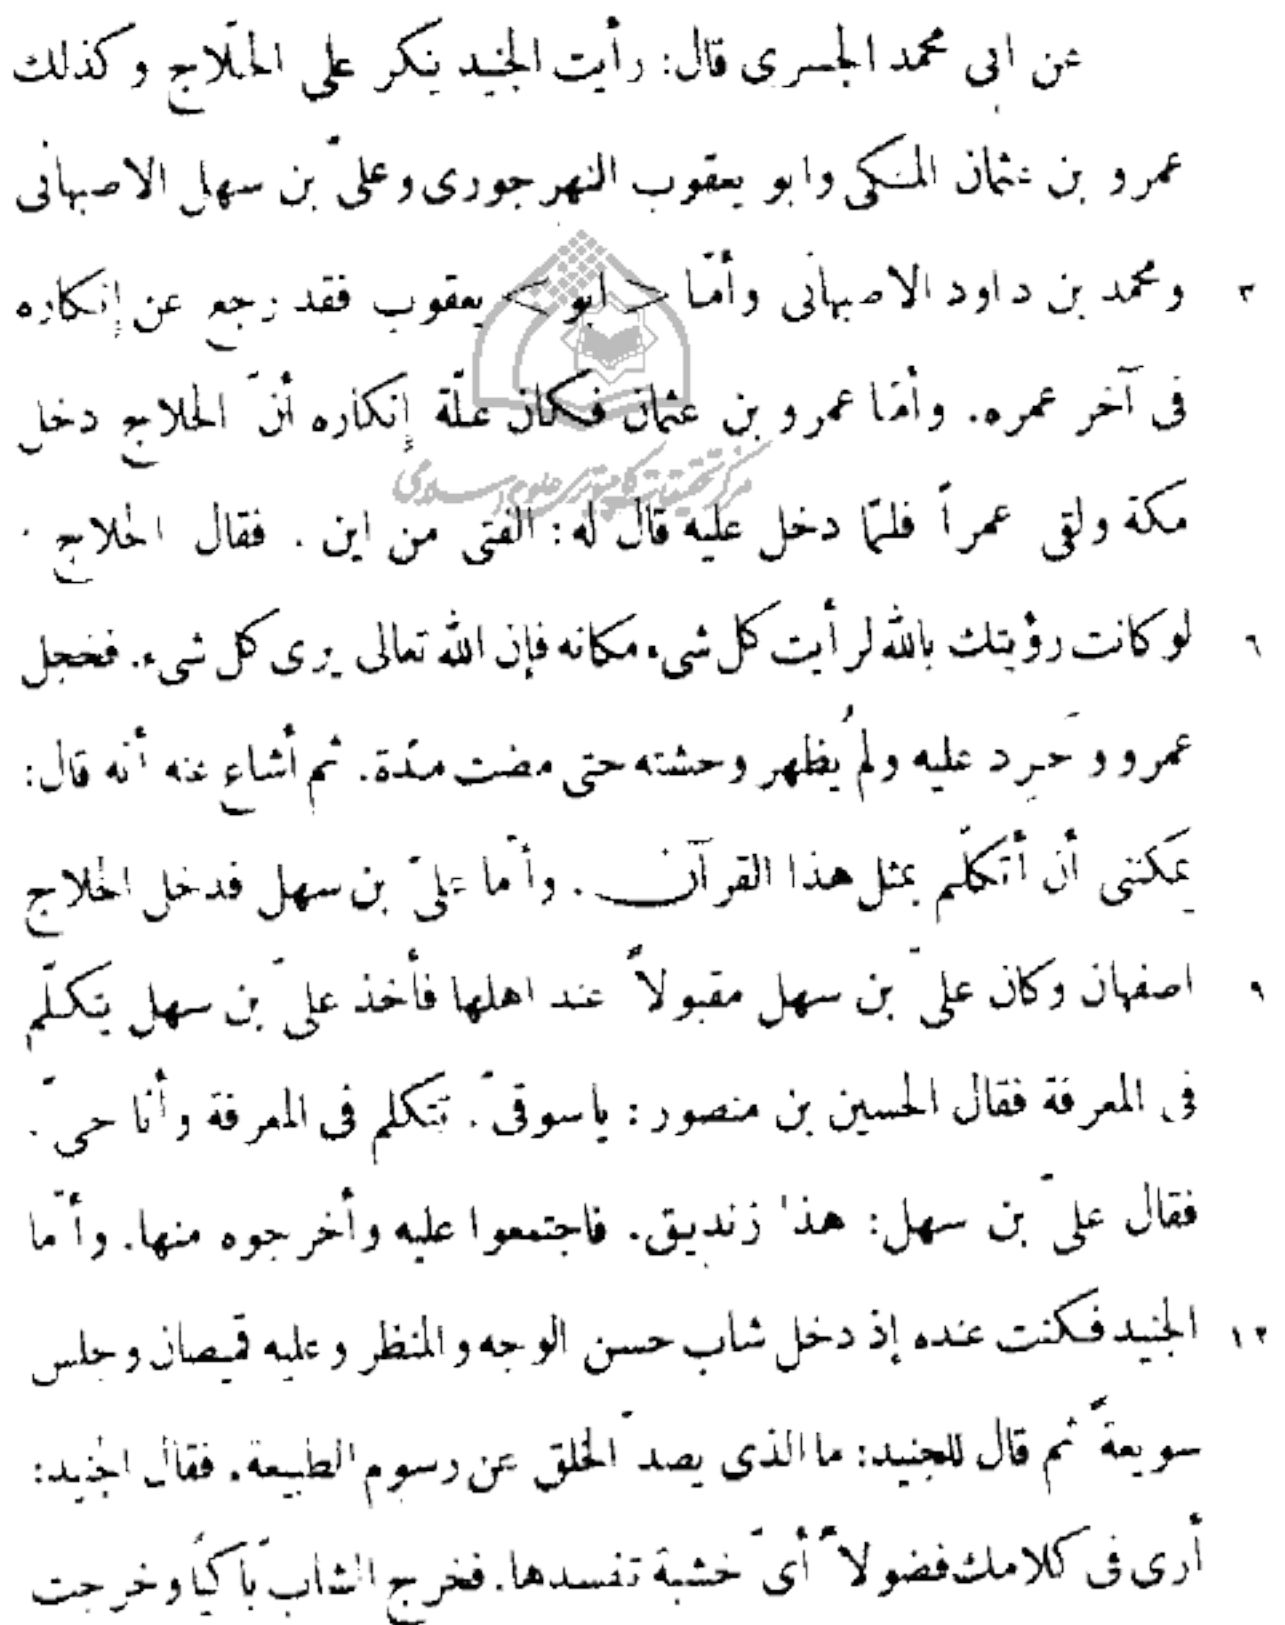 عن ابى محمد الجسرى قال: رأيت الجنيد ينكر على الحلّاج وكذلك
عمرو بن عثمان المكى وابو يعقوب النهرجورى وعلىّ بن سهل الاصبهانى
٣ ومحمد بن داود الاصبهانى وأمّا < ابو > يعقوب فقد رجع عن إنكاره
فى آخر عمره. وأمّا عمرو بن عثمان فكان علّة إنكاره أنّ الحلاج دخل
مركز تحقيقات كامپيوترى علوم اسلامى
مكة ولقى عمراً فلمّا دخل عليه قال له: الفتى من اين. فقال الحلاج
٦ لو كانت رؤيتك بالله لرأيت كل شىء مكانه فإن الله تعالى يرى كل شىء. فخجل
عمرو وحَرِد عليه ولم يُظهر وحشته حتى مضت مدّة. ثم أشاع عنه أنه قال:
يمكننى أن أتكلّم بمثل هذا القرآن. وأمّا علىّ بن سهل فدخل الحلاج
٩ اصفهان وكان علىّ بن سهل مقبولاً عند اهلها فأخذ علىّ بن سهل يتكلّم
فى المعرفة فقال الحسين بن منصور: ياسوقىّ. تتكلم فى المعرفة وأنا حىّ.
فقال علىّ بن سهل: هذا زنديق. فاجتمعوا عليه وأخرجوه منها. وأمّا
١٢ الجنيد فكنت عنده إذ دخل شاب حسن الوجه والمنظر وعليه قميصان وجلس
سويعةً ثم قال للجنيد: ما الذى يصدّ الخلق عن رسوم الطبيعة. فقال الجنيد:
أرى فى كلامك فضولاً أىّ خشبة تفسدها. فخرج الشابّ باكيًا وخرجت